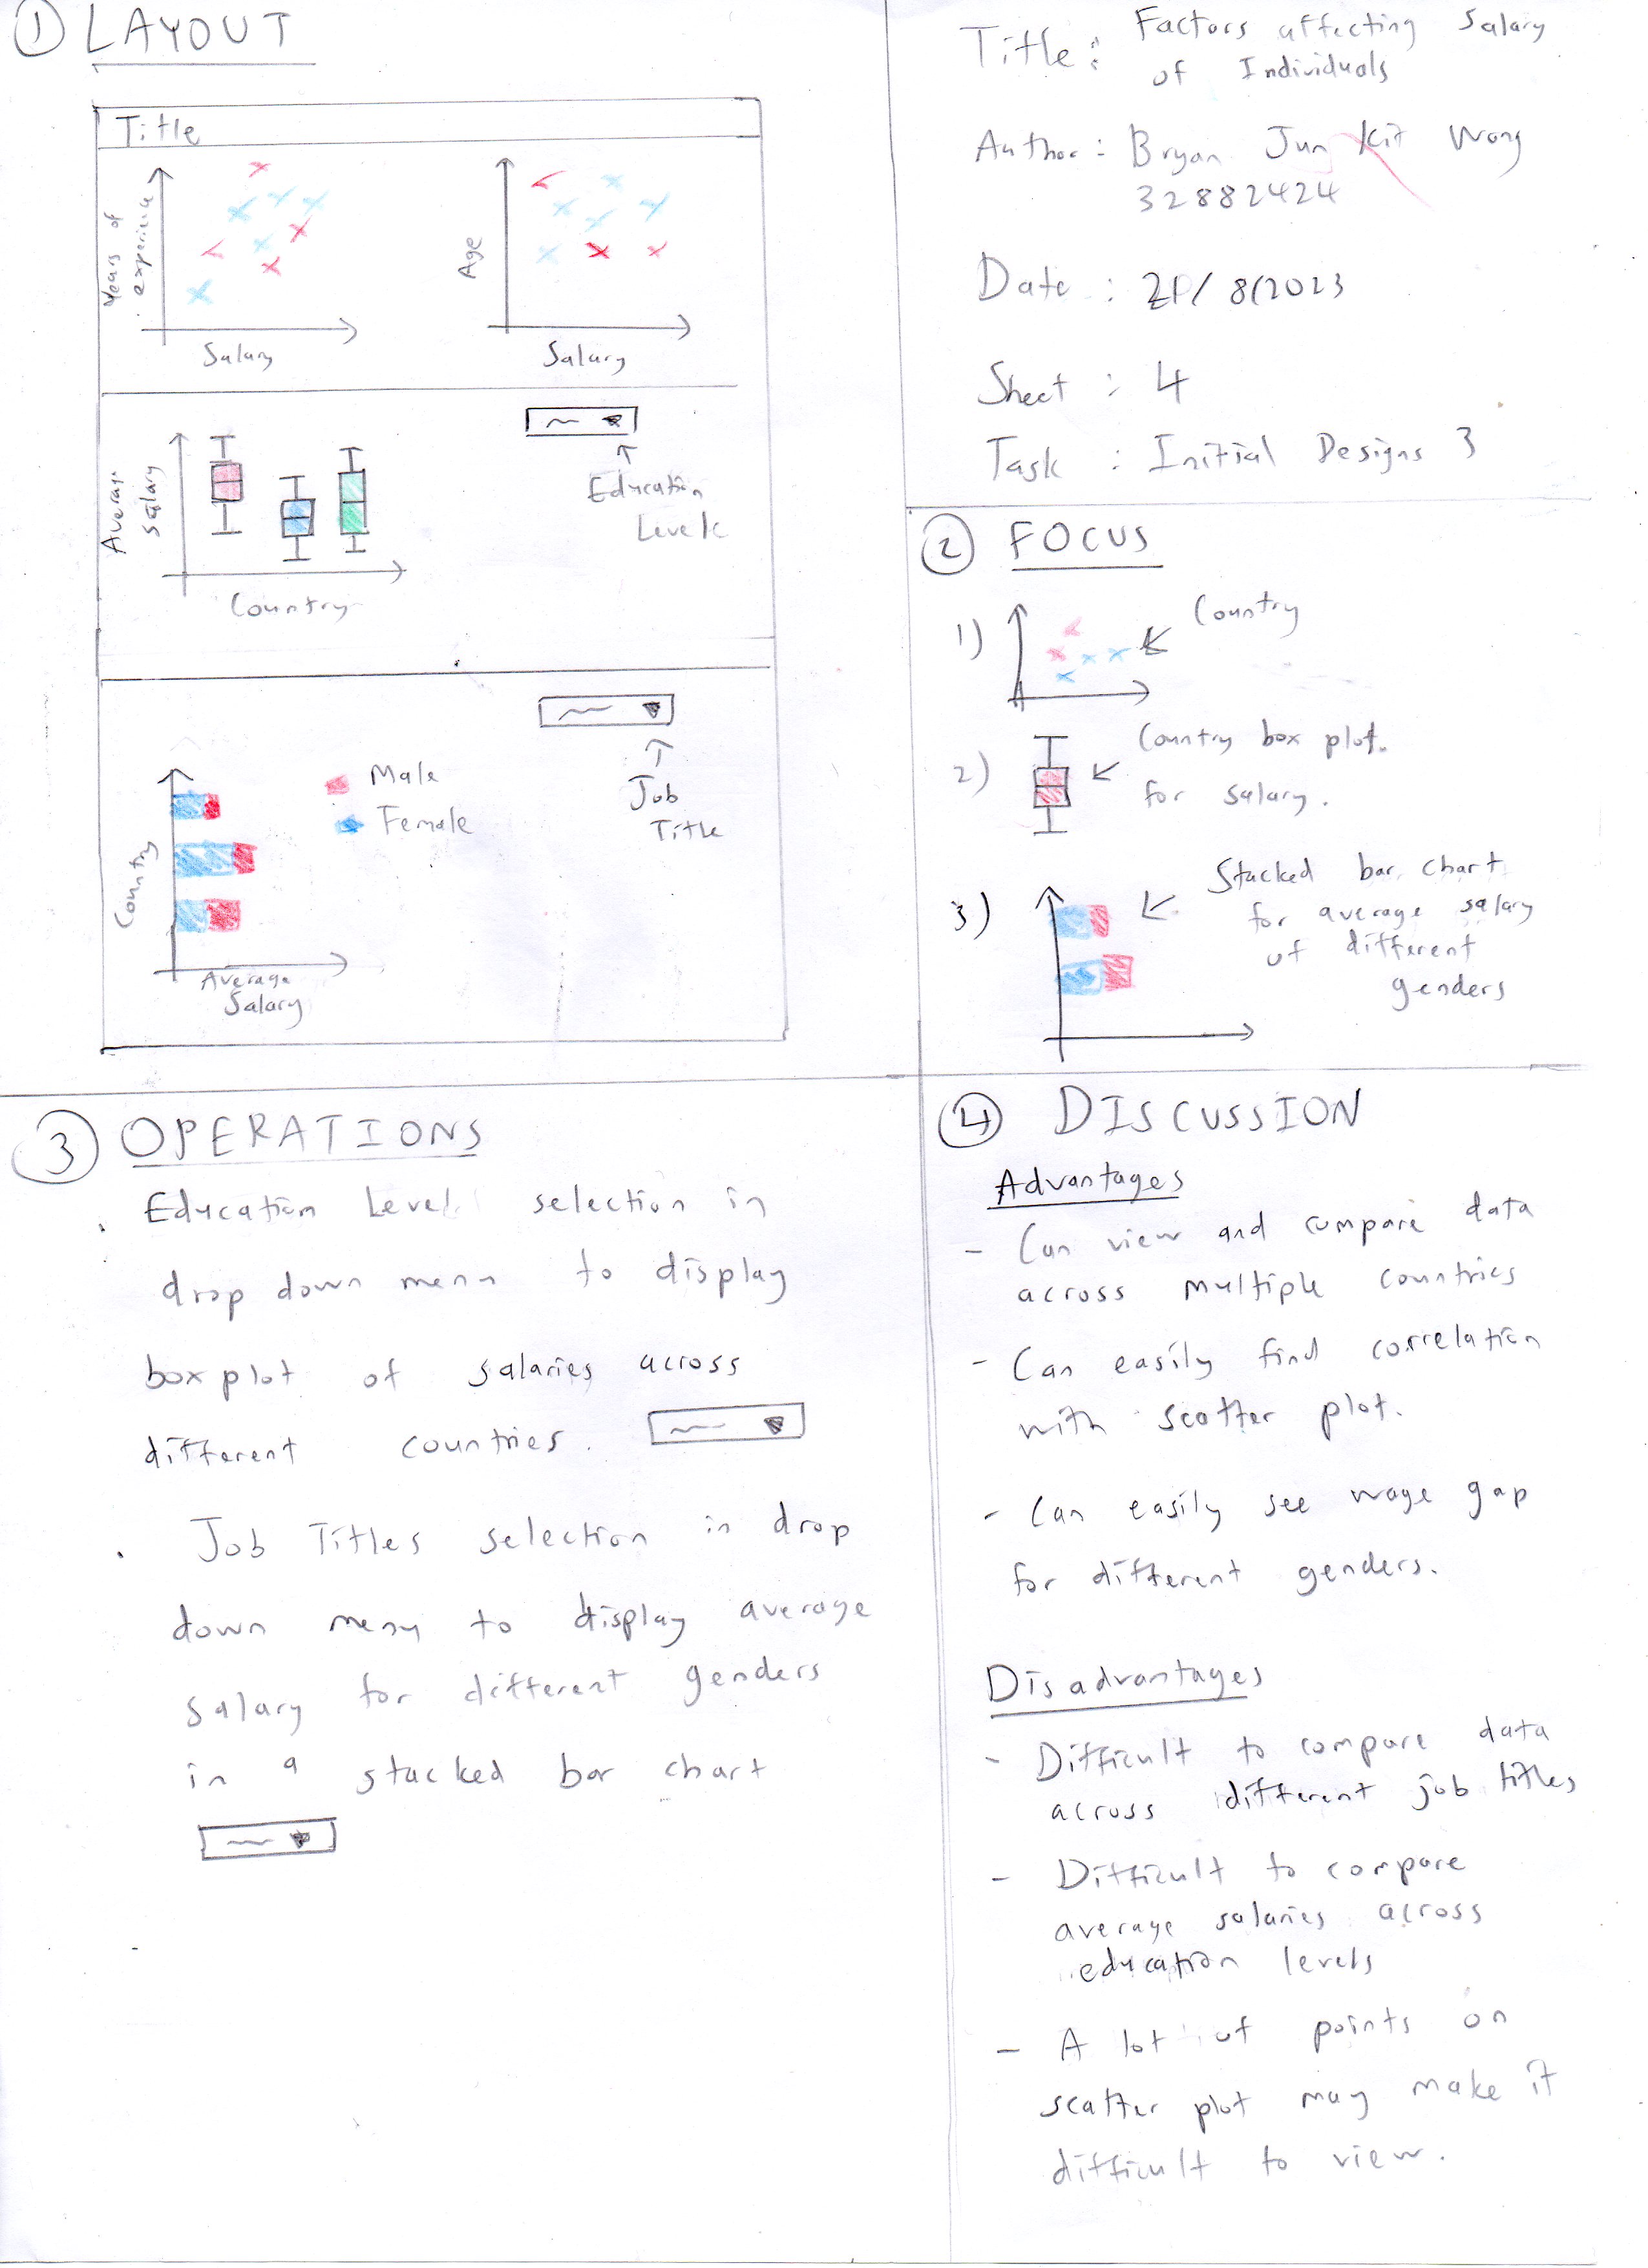 ① LAYOUT
Title
Years of
experience
Salary
Age
Salary
Average
Salary
Country
Education
Levels
Country
Average
Salary
Male
Female
Job
Title
Title: Factors affecting Salary
of Individuals
Author: Bryan Jun Kit Wong
32882424
Date: /8/2023
Sheet : 4
Task : Initial Designs 3
② FOCUS
1) Country
2) Country box plot.
for salary.
3) Stacked bar chart
for average salary
of different
genders
③ OPERATIONS
. Education Level selection in
drop down menu to display
box plot of salaries across
different countries.
. Job Titles selection in drop
down menu to display average
salary for different genders
in a stacked bar chart
④ DISCUSSION
Advantages
- Can view and compare data
across multiple countries
- Can easily find correlation
with scatter plot.
- Can easily see wage gap
for different genders.
Disadvantages
- Difficult to compare data
across different job titles
- Difficult to compare
average salaries across
education levels
- A lot of points on
scatter plot may make it
difficult to view.